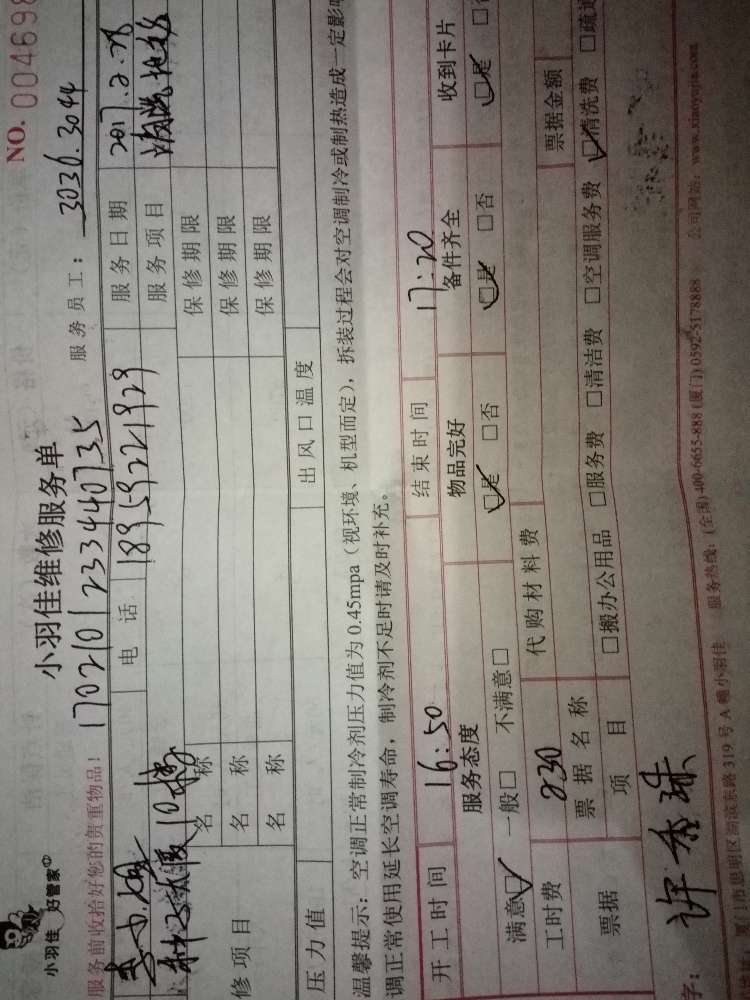 小羽佳 好管家
小羽佳维修服务单
NO. 004698
服务前收拾好您的贵重物品！
170210123440735
服务员工：3036.3044
电话 18959221929 服务日期 2017.2.28
科技大厦10楼 服务项目 清洗地毯
修项目 名称 保修期限
名称 保修期限
名称 保修期限
压力值 出风口温度
温馨提示：空调正常制冷剂压力值为0.45mpa（视环境、机型而定），拆装过程会对空调制冷或制热造成一定影响
调正常使用延长空调寿命，制冷剂不足时请及时补充。
开工时间 16:50 结束时间 17:20
服务态度 物品完好 备件齐全 收到卡片
满意□ 一般□ 不满意□ □是 □否 □是 □否 □是
工时费 230 代购材料费
票据 票据名称 票据金额
项目 □搬办公用品 □服务费 □清洁费 □空调服务费 □清洗费 □疏通
字：许秀珠
厦门市思明区湖滨东路319号A幢小羽佳 服务热线：(全国)400-6655-888 (厦门)0592-5178888 公司网站：www.xiaoyujia.com